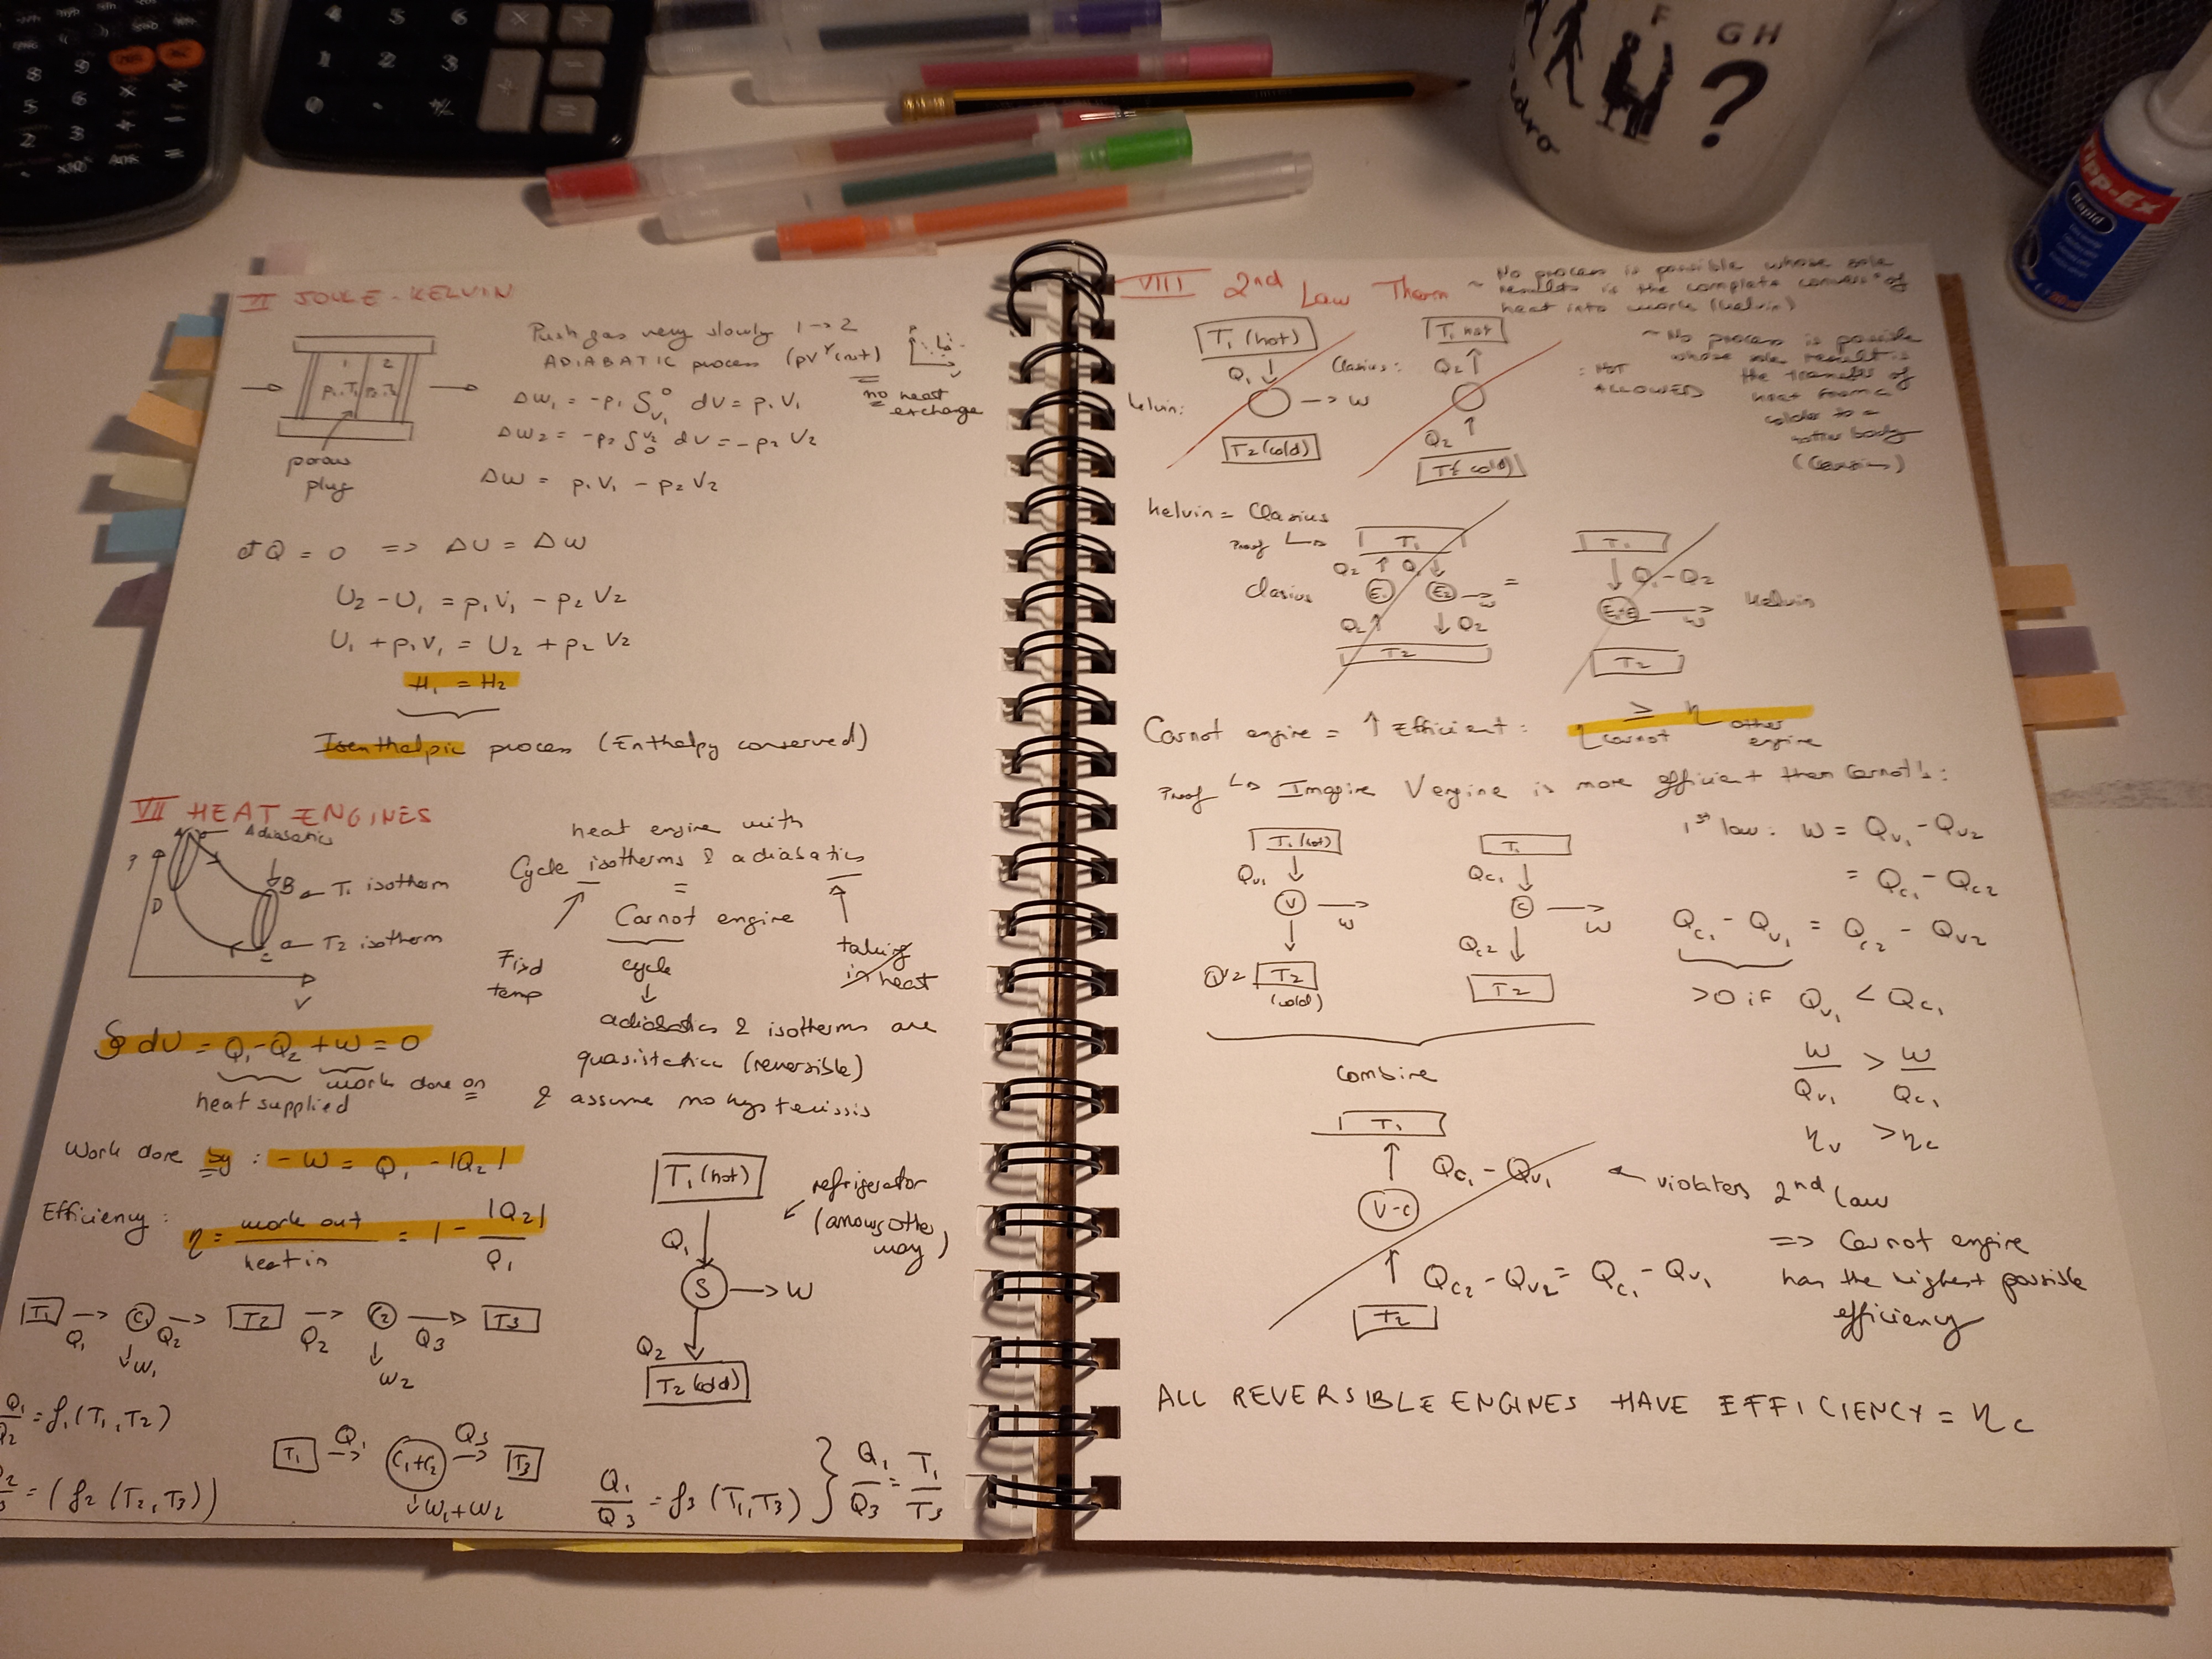 VI JOULE-KELVIN
Push gas very slowly 1 → 2
ADIABATIC process (pVᵞ const)
no heat exchange
p₁T₁
1
2
porous plug
ΔW₁ = -p₁ ∫V₁⁰ dV = p₁V₁
ΔW₂ = -p₂ ∫₀V₂ dV = -p₂V₂
ΔW = p₁V₁ - p₂V₂
đQ = 0 => ΔU = ΔW
U₂ - U₁ = p₁V₁ - p₂V₂
U₁ + p₁V₁ = U₂ + p₂V₂
H₁ = H₂
Isenthalpic process (Enthalpy conserved)
VII HEAT ENGINES
Adiabatics
B
T₁ isotherm
D
T₂ isotherm
V
heat engine with
Cycle isotherms & adiabatics
=
Carnot engine
Fixed temp
cycle
taking in heat
adiabatics & isotherms are
quasistatice (reversible)
& assume no hysterisis
∮ dU = Q₁ - Q₂ + W = 0
heat supplied
work done on
Work done by : -W = Q₁ - |Q₂|
Efficiency : η = work out / heat in = 1 - |Q₂| / Q₁
T₁ (hot)
Q₁
S → W
Q₂
T₂ (cold)
refrigerator
(among other way)
T₁ → C₁ → T₂ → C₂ → T₃
Q₁ Q₂ Q₂ Q₃
↓W₁ ↓W₂
Q₁/Q₂ = f₁ (T₁, T₂)
T₁ → C₁+C₂ → T₃
Q₁ Q₃
↓W₁+W₂
= (f₂ (T₂, T₃))
Q₁/Q₃ = f₃ (T₁, T₃) } Q₁/Q₃ = T₁/T₃
VIII 2nd Law Therm
~ No process is possible whose sole
results is the complete convers° of
heat into work (Kelvin)
~ No process is possible
whose sole result is
the transfer of
heat from a
colder to a
hotter body
(Clausius)
: NOT ALLOWED
Kelvin:
T₁ (hot)
Q₁ ↓
→ W
T₂ (cold)
Clausius:
T₁ hot
Q₂ ↑
Q₂ ↑
T₂ cold
Kelvin = Clausius
Proof ↳
Clausius
T₁
Q₂ ↑ Q₁ ↓
E₁ E₂ → W
Q₂ ↑ ↓ Q₂
T₂
=
T₁
↓ Q₁ - Q₂
→ W
T₂
Kelvin
Carnot engine = ↑ Efficient : η carnot ≥ η other engine
Proof ↳ Imagine V engine is more efficient than Carnot's :
T₁ (hot)
Qv₁ ↓
V → W
↓ Qv₂
T₂ (cold)
T₁
Qc₁ ↓
C → W
Qc₂ ↓
T₂
1ˢᵗ law : W = Qv₁ - Qv₂
= Qc₁ - Qc₂
Qc₁ - Qv₁ = Qc₂ - Qv₂
> 0 if Qv₁ < Qc₁
W/Qv₁ > W/Qc₁
ηv > ηc
Combine
T₁
↑ Qc₁ - Qv₁
V-C
↑ Qc₂ - Qv₂ = Qc₁ - Qv₁
T₂
violates 2nd law
=> Carnot engine
has the highest possible
efficiency
ALL REVERSIBLE ENGINES HAVE EFFICIENCY = ηc
F GH
?
Tipp-Ex
Rapid